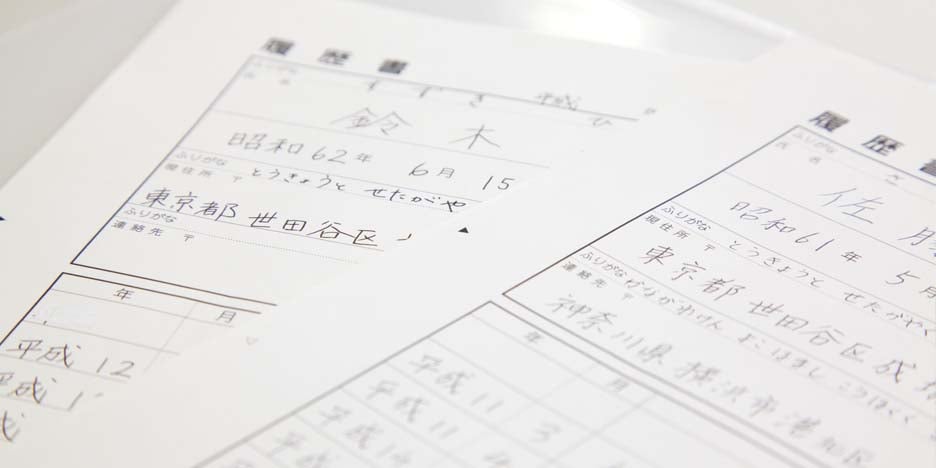 履歴書
ふりがな すずき
平成
鈴木
昭和62年 6月 15
ふりがな とうきょうと せたがや
現住所 〒
東京都 世田谷区
ふりがな
連絡先 〒
年 月
平成 12
平成 1
履歴書
ふりがな さ
氏名 佐
昭和61年 5月
ふりがな とうきょうと せたがやく
現住所 〒
東京都 世田谷区成
ふりがな かながわけん よこはまし こうほく
連絡先 〒
神奈川県 横浜市港北区
年 月
平成 11 3
平成 11
平成 14